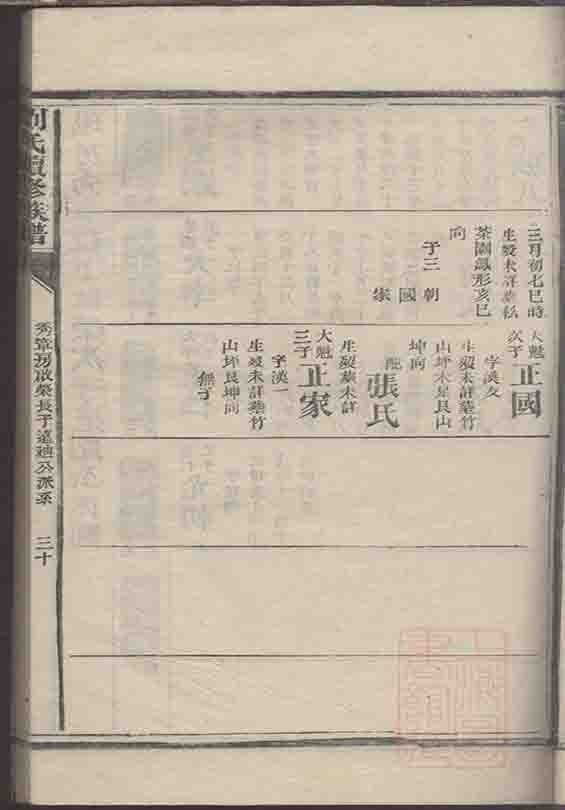 三月初七巳時
生歿未詳葬私
茶園鳳形亥巳
向
子三 朝
國
家
大魁次子 正國
字漢文
生歿未詳葬竹
山坪木星艮山
坤向
配 張氏
生歿葬未詳
大魁三子 正家
字漢一
生歿未詳葬竹
山坪艮坤向
無子
劉氏續修族譜
秀章房啟榮長子遠廸公派系 三十